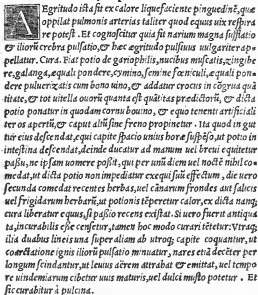 AEgritudo ista fit ex calore liquefaciente pinguedinẽ, quæ
oppilat pulmonis arterias taliter quod equus uix respira
re potest. Et cognoscitur quia fit narium magna sufflatio
& iliorũ crebra pulsatio, & hæc ægritudo pulsiuus uulgariter ap=
pellatur. Cura. Fiat potio de gariophilis, nucibus muscatis, zingibe
re, galanga, æquali pondere, cymino, semine fœniculi, æquali pon=
dere puluerizatis cum bono uino, & addatur crocus in cõgrua quã
titate, & tot uitella ouorũ quanta est quãtitas prædictorũ, & dicta
potio ponatur in quodam cornu bouino, & equo tenenti artificiali
ter os apertũ, & caput aliũ sine freno propinetur. Ita quod in gut
tur eius descẽdat, equi capite spacio unius horæ suspẽso, ut potio in
intestina descẽdat, deinde ducatur ad manum uel breui equitetur
passu, ne ipsam uomere possit, qui per unũ diem uel noctẽ nihil co=
medat, ut dicta potio non impediatur exequi suũ effectum, die uero
secunda comedat recentes herbas, uel cãnarum frondes aut salicis
uel frigidarum herbarũ, ut potionis tẽperetur calor, ex dicta nanq;
cura liberatur equus, si passio recens existat. Si uero fuerit antiqua
ta, incurabilis esse censetur, tamen hoc modo curari tẽtetur: Vtraq;
ilia duabus lineis una super aliam ab utroq; capite coquantur, ut
coarctatione ignis iliorũ pulsatio minuatur, nares etiã decẽter per
longum scindantur, ut leuius aërem attrahat & emittat, uel tempo
re uindemiarum cibetur uuis maturis, uel dulci musto potetur. Et
sic curabitur à pulcina.